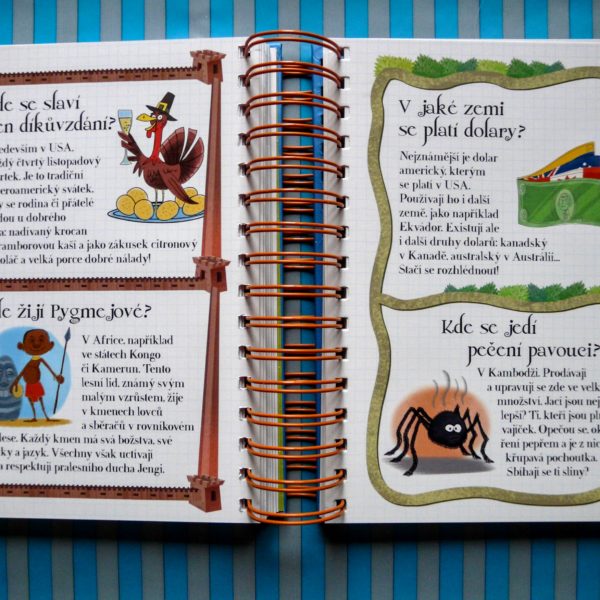 de se slaví
en díkůvzdání?
edevším v USA.
ždý čtvrtý listopadový
rtek. Je to tradiční
eroamerický svátek.
y se rodina či přátelé
dou u dobrého
a: nadívaný krocan
ramborovou kaší a jako zákusek citronový
oláč a velká porce dobré nálady!
de žijí Pygmejové?
V Africe, například
ve státech Kongo
či Kamerun. Tento
lesní lid, známý svým
malým vzrůstem, žije
v kmenech lovců
a sběračů v rovníkovém
lese. Každý kmen má svá božstva, své
ky a jazyk. Všechny však uctívají
a respektují pralesního ducha Jengi.
V jaké zemi
se platí dolary?
Nejznámější je dolar
americký, kterým
se platí v USA.
Používají ho i další
země, jako například
Ekvádor. Existují ale
i další druhy dolarů: kanadský
v Kanadě, australský v Austrálii...
Stačí se rozhlédnout!
Kde se jedí
pečení pavouci?
V Kambodži. Prodávají
a upravují se zde ve velk
množství. Jací jsou nej
lepší? Ti, kteří jsou pln
vajíček. Opečou se, ok
ření pepřem a je z nic
křupavá pochoutka.
Sbíhají se ti sliny?